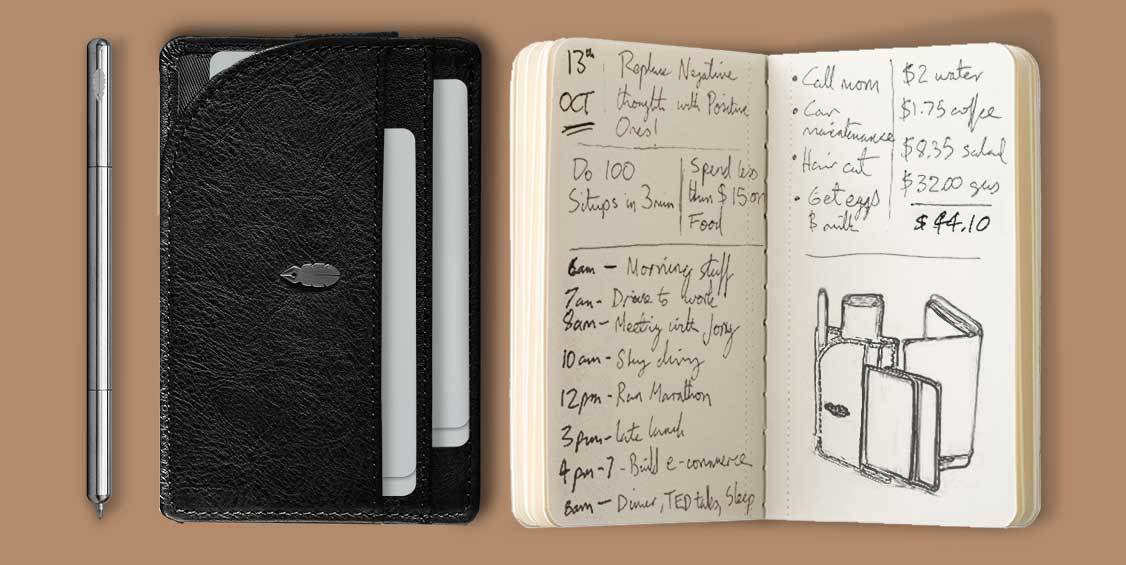 13th
OCT
Replace Negative
thoughts with Positive
Ones!
Do 100
Situps in 3min
Spend less
than $15 on
Food
6am – Morning stuff
7am – Drive to work
8am – Meeting with Jony
10am – Sky diving
12pm – Run Marathon
3pm – late lunch
4pm-7 – Build e-commerce
8am – Dinner, TED talks, Sleep
• Call mom
• Car
maintenance
• Hair cut
• Get eggs
& milk
$2 water
$1.75 coffee
$8.35 salad
$32.00 gas
$44.10